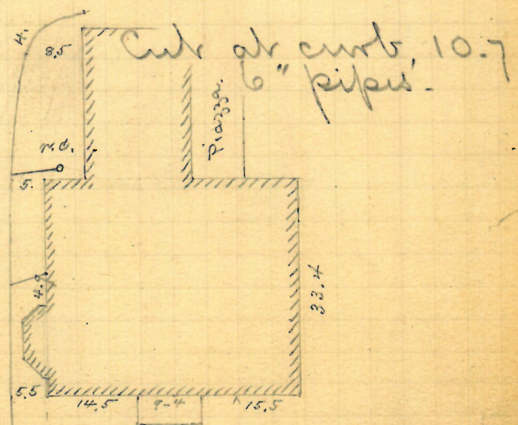 Cut at curb, 10.7
6" pipes.
4.
8.5
Piazza.
r.c.
5.
4.9
33.4
5.5
14.5
9-4
15.5